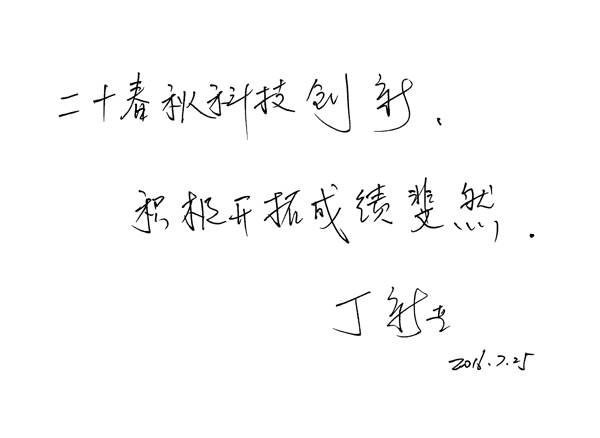 二十春秋科技创新.
积极开拓成绩斐然.
丁新
2016.7.25